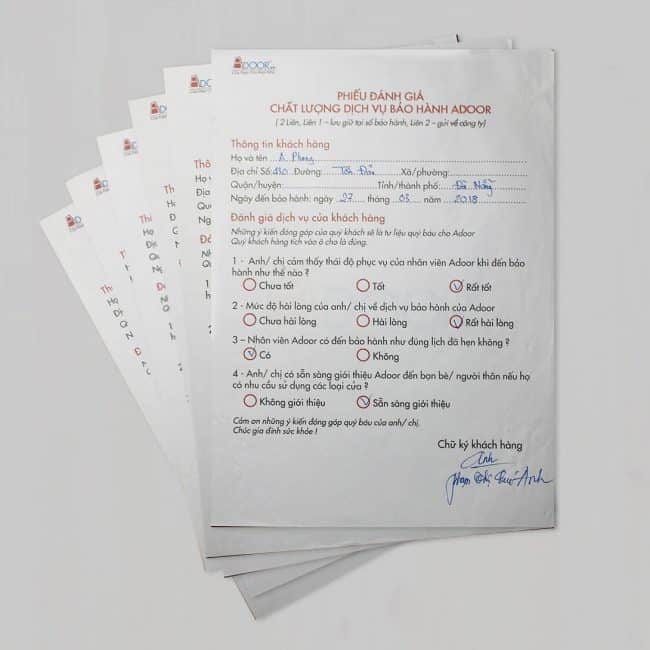 ADOOR
PHIẾU ĐÁNH GIÁ
CHẤT LƯỢNG DỊCH VỤ BẢO HÀNH ADOOR
( 2 Liên, Liên 1 – lưu giữ tại sổ bảo hành, Liên 2 – gửi về công ty)
Thông tin khách hàng
Họ và tên A. Phong
Địa chỉ Số: 410 Đường: Tôn Đản Xã/phường:
Quận/huyện: Tỉnh/thành phố: Đà Nẵng
Ngày đến bảo hành: ngày 27 tháng 03 năm 2018
Đánh giá dịch vụ của khách hàng
Những ý kiến đóng góp của quý khách sẽ là tư liệu quý báu cho Adoor
Quý khách hàng tích vào ô cho là đúng.
1 - Anh/ chị cảm thấy thái độ phục vụ của nhân viên Adoor khi đến bảo
hành như thế nào ?
Chưa tốt Tốt Rất tốt
2 - Mức độ hài lòng của anh/ chị về dịch vụ bảo hành của Adoor
Chưa hài lòng Hài lòng Rất hài lòng
3 – Nhân viên Adoor có đến bảo hành như đúng lịch đã hẹn không ?
Có Không
4 - Anh/ chị có sẵn sàng giới thiệu Adoor đến bạn bè/ người thân nếu họ
có nhu cầu sử dụng các loại cửa ?
Không giới thiệu Sẵn sàng giới thiệu
Cảm ơn những ý kiến đóng góp quý báu của anh/ chị.
Chúc gia đình sức khỏe !
Chữ ký khách hàng
Anh
Phạm Thị Anh